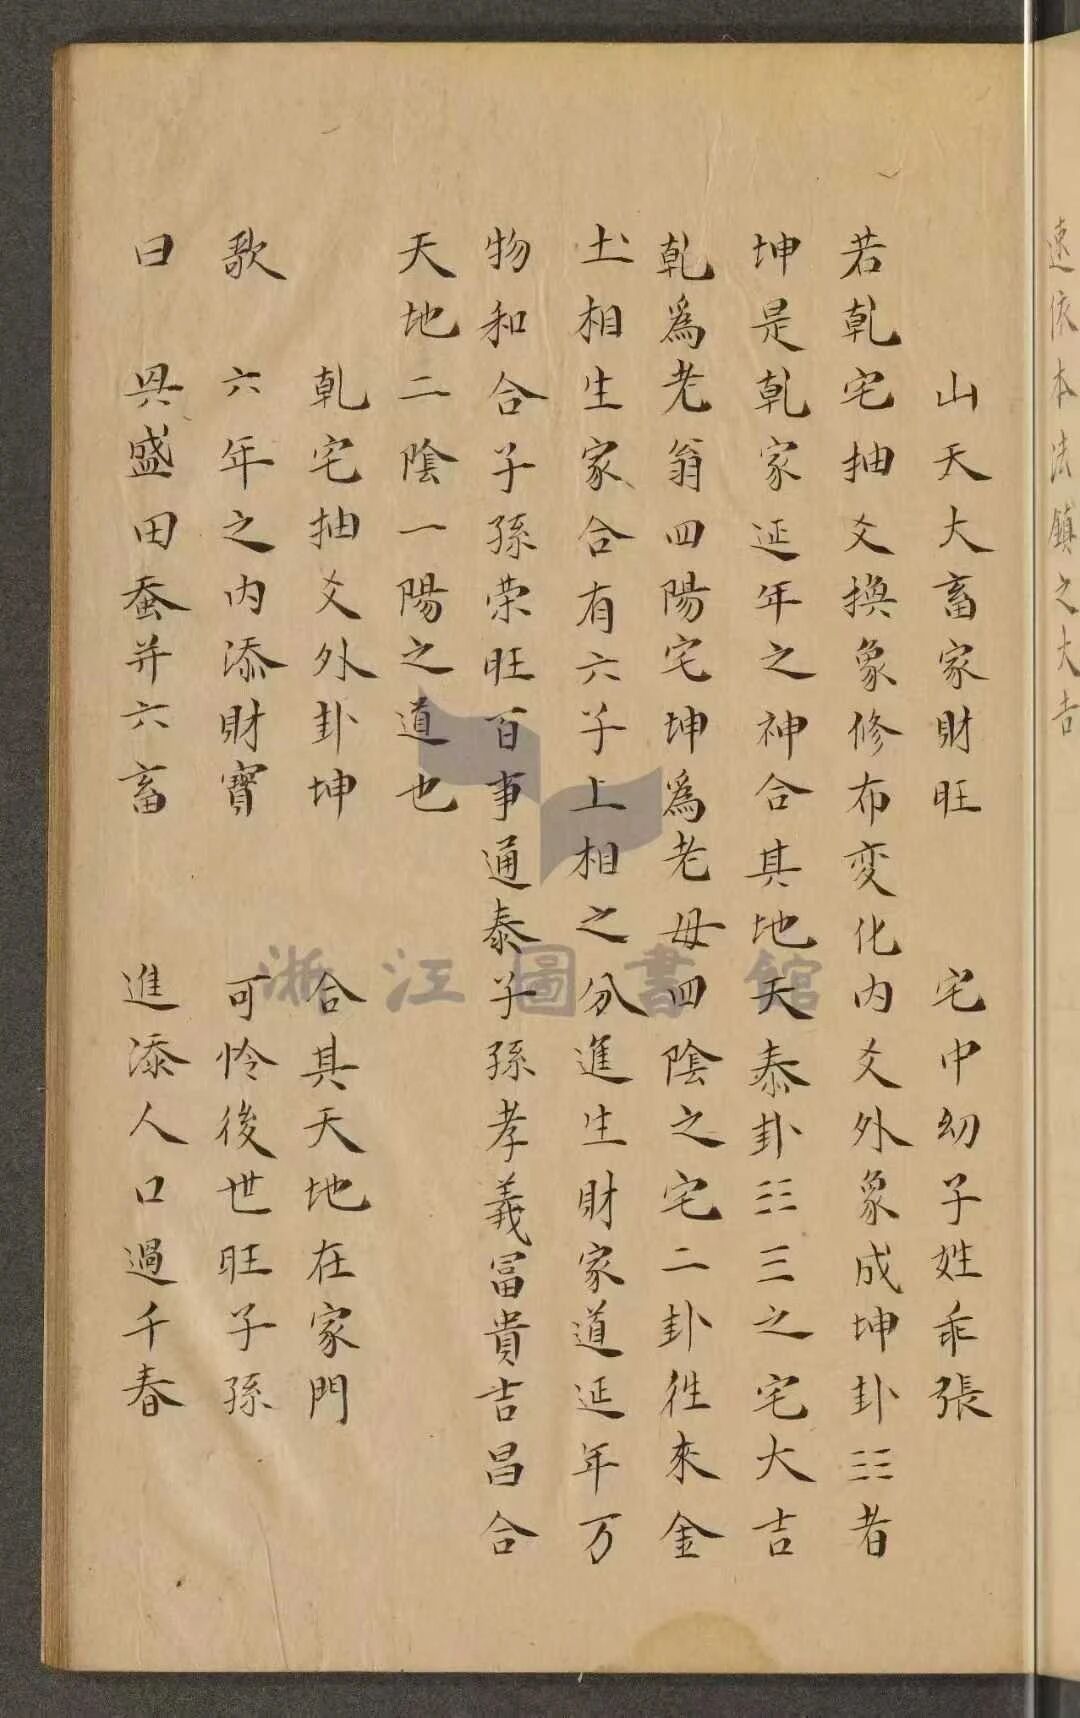 速依本法鎮之大吉
山天大畜家財旺　宅中幼子姓乖張
若乹宅抽爻換象修布变化内爻外象成坤卦☷者
坤是乹家延年之神合其地天泰卦☷☰之宅大吉
乹為老翁四陽宅坤為老母四陰之宅二卦徃來金
土相生家合有六子上相之分進生財家道延年万
物和合子孫荣旺百事通泰子孫孝義冨貴吉昌合
天地二陰一陽之道也
乹宅抽爻外卦坤　合其天地在家門
歌　六年之内添財寳　可怜後世旺子孫
曰　㒷盛田蚕并六畜　進添人口過千春
浙江圖書館